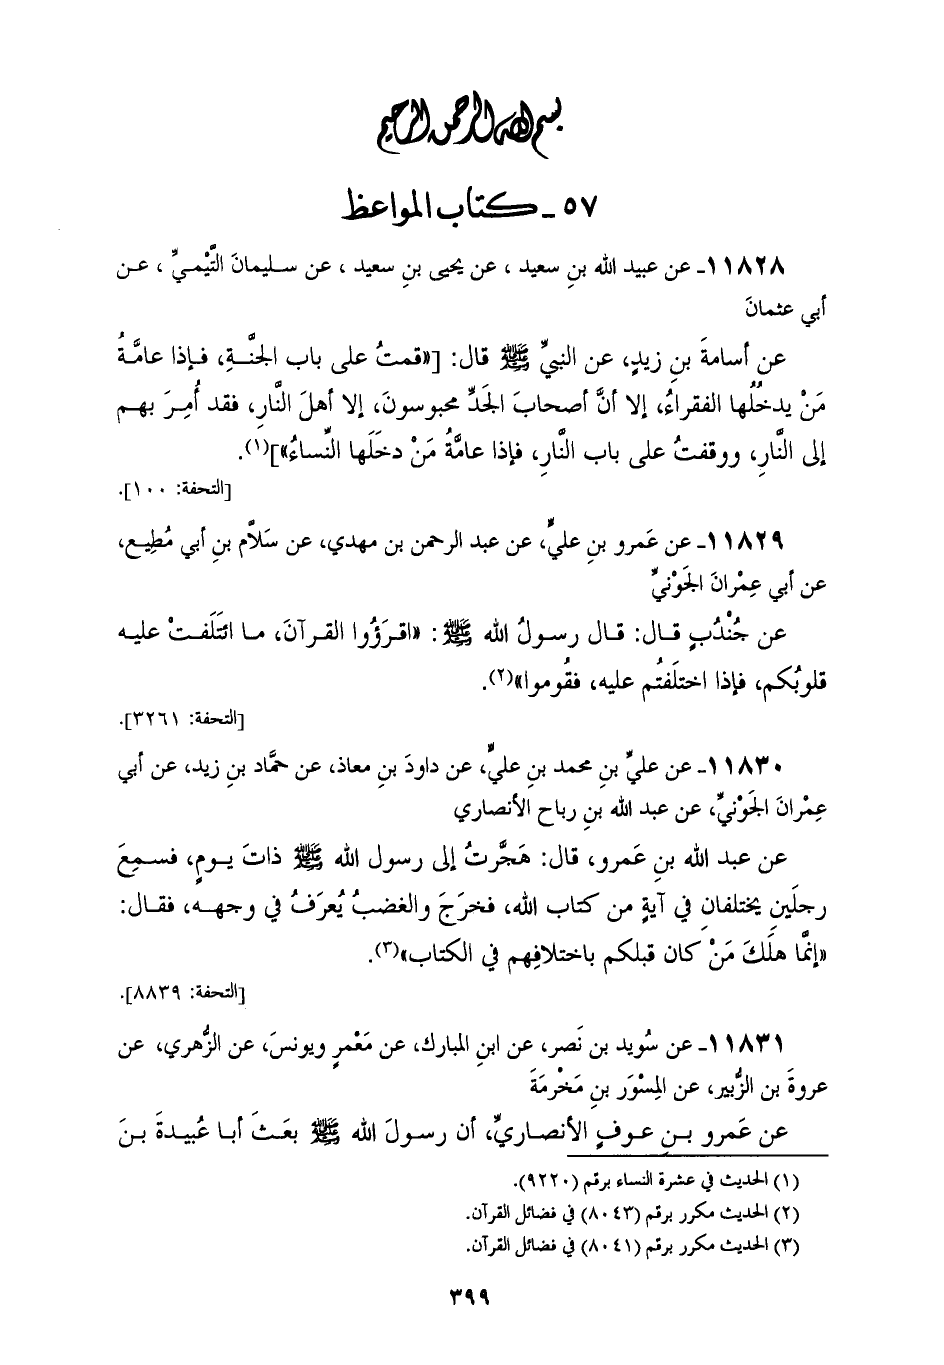 بسم الله الرحمن الرحيم
٥٧ ـ كتاب المواعظ
١١٨٢٨ـ عن عبيد الله بنِ سعيد ، عن يحيى بنِ سعيد ، عن سليمانَ التَّيْميِّ ، عن
أبي عثمانَ
عن أسامةَ بنِ زيدٍ، عن النبيِّ ﷺ قال: [«قمتُ على باب الجنَّةِ، فإذا عامَّةُ
مَنْ يدخُلُها الفقراءُ، إلا أنَّ أصحابَ الجَدِّ محبوسونَ، إلا أهلَ النَّارِ، فقد أُمِرَ بهم
إلى النَّارِ، ووقفتُ على باب النَّارِ، فإذا عامَّةُ مَنْ دخَلَها النِّساءُ»](١).
[التحفة: ١٠٠].
١١٨٢٩ـ عن عَمرو بنِ عليٍّ، عن عبد الرحمن بن مهدي، عن سَلاَّم بنِ أبي مُطِيع،
عن أبي عِمْرانَ الجَوْنيِّ
عن جُنْدُبٍ قال: قال رسولُ الله ﷺ: «اقرَؤُوا القرآنَ، ما ائتَلَفتْ عليه
قلوبُكم، فإذا اختلَفتُم عليه، فقُوموا»(٢).
[التحفة: ٣٢٦١].
١١٨٣٠ـ عن عليِّ بنِ محمد بنِ عليٍّ، عن داودَ بنِ معاذ، عن حمَّاد بنِ زيد، عن أبي
عِمْرانَ الجَوْنيِّ، عن عبد الله بنِ رباح الأنصاري
عن عبد الله بنِ عَمرو، قال: هَجَّرتُ إلى رسول الله ﷺ ذاتَ يومٍ، فسمِعَ
رجلَينِ يختلفانِ في آيةٍ من كتاب الله، فخرَجَ والغضبُ يُعرَفُ في وجهه، فقال:
«إنَّما هلَكَ مَنْ كان قبلكم باختلافِهم في الكتاب»(٣).
[التحفة: ٨٨٣٩].
١١٨٣١ـ عن سُويد بن نَصر، عن ابنِ المبارك، عن مَعْمرٍ ويونسَ، عن الزُّهري، عن
عروةَ بن الزُّبير، عن المِسْوَر بنِ مَخْرمَةَ
عن عَمرو بنِ عوفٍ الأنصاريِّ، أن رسولَ الله ﷺ بعَثَ أبا عُبيدةَ بنَ
(١) الحديث في عشرة النساء برقم (٩٢٢٠).
(٢) الحديث مكرر برقم (٨٠٤٣) في فضائل القرآن.
(٣) الحديث مكرر برقم (٨٠٤١) في فضائل القرآن.
٣٩٩